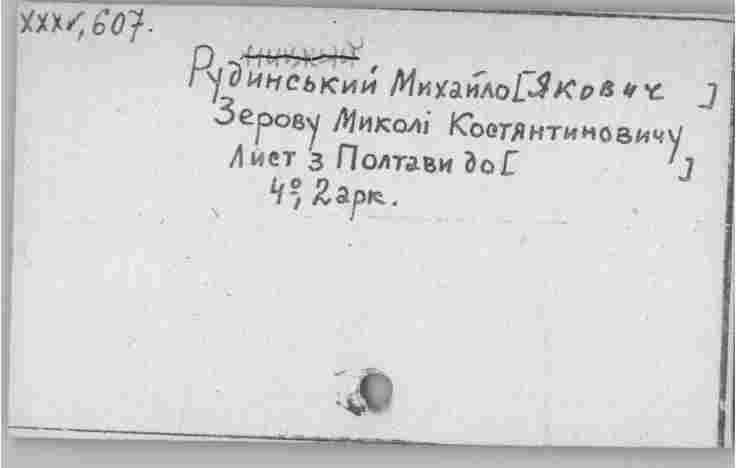 XXXV, 607.
Рудинський Михайло [Якович ]
Зерову Миколі Костянтиновичу
Лист з Полтави до [ ]
4º, 2 арк.